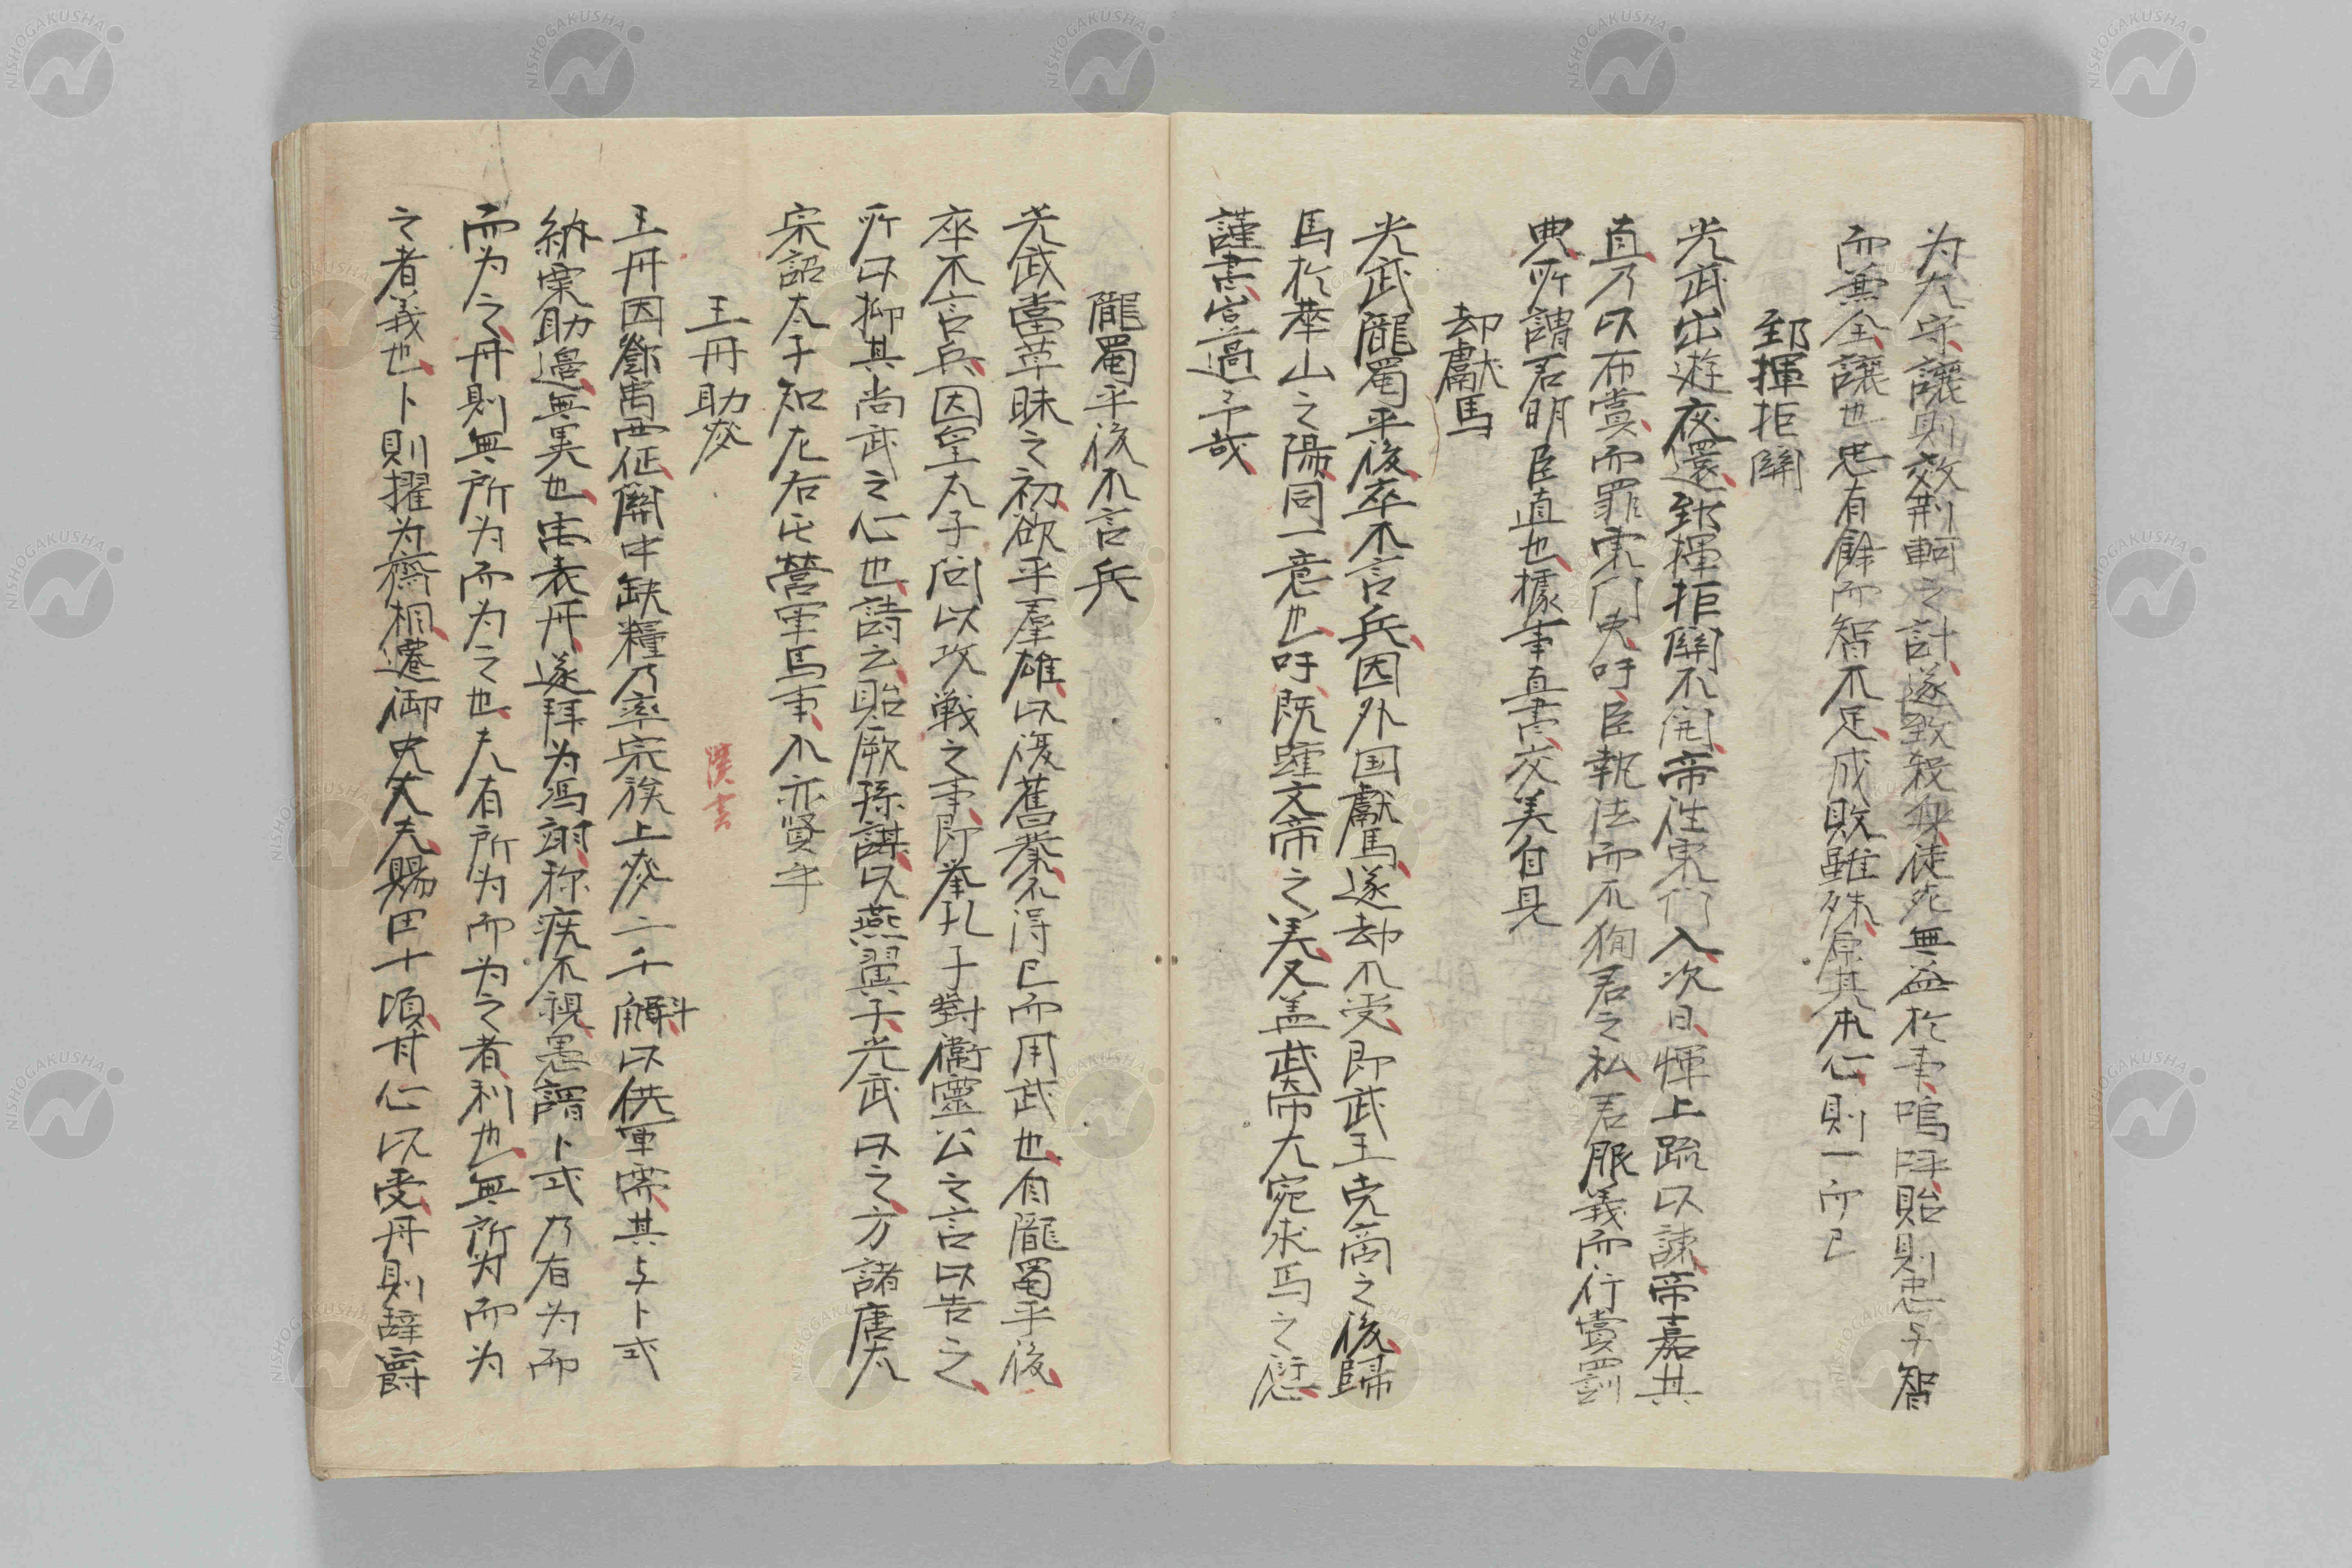 为九守讓則效荆軻之計遂致殺身徒死無益於事嗚呼貽則忠与智
而兼全讓也忠有餘而智不足成敗雖殊原其本心則一而已
郅揮拒關
光武出遊夜還郅揮拒關不開帝往東门入次日惲上疏以諫帝嘉其
直乃以布賞而罪東门吏吁臣執法而不狥君之私君服義而行賞罰
典所謂君明臣直也據事直書交美自見
却獻馬
光武隴蜀平後卒不言兵因外国獻馬遂却不受即武王克商之後歸
馬於華山之陽同一意也吁既踵文帝之美又盖武帝大宛求馬之愆
謹書豈過予哉
隴蜀平後不言兵
光武當草昧之初欲平羣雄以復舊業不得已而用武也自隴蜀平後
卒不言兵因皇太子问以攻戰之事即举孔子對衞靈公之言以告之
所以抑其尚武之心也詩云貽厥孫謀以燕翼子光武以之方諸唐太
宗詔太子知左右屯營軍馬事不亦賢乎
王丹助麥
漢書
王丹因鄧禹西征關中缺糧乃率宗族上麥二千斛以供軍需其与卜式
納粟助邊無異也禹表丹遂拜为馮翊称疾不視愚謂卜式乃有为而
而为之丹則無所为而为之也夫有所为而为之者利也無所为而为
之者義也卜則擢为齊相遷御史大夫賜田十頃甘心以受丹則辞爵